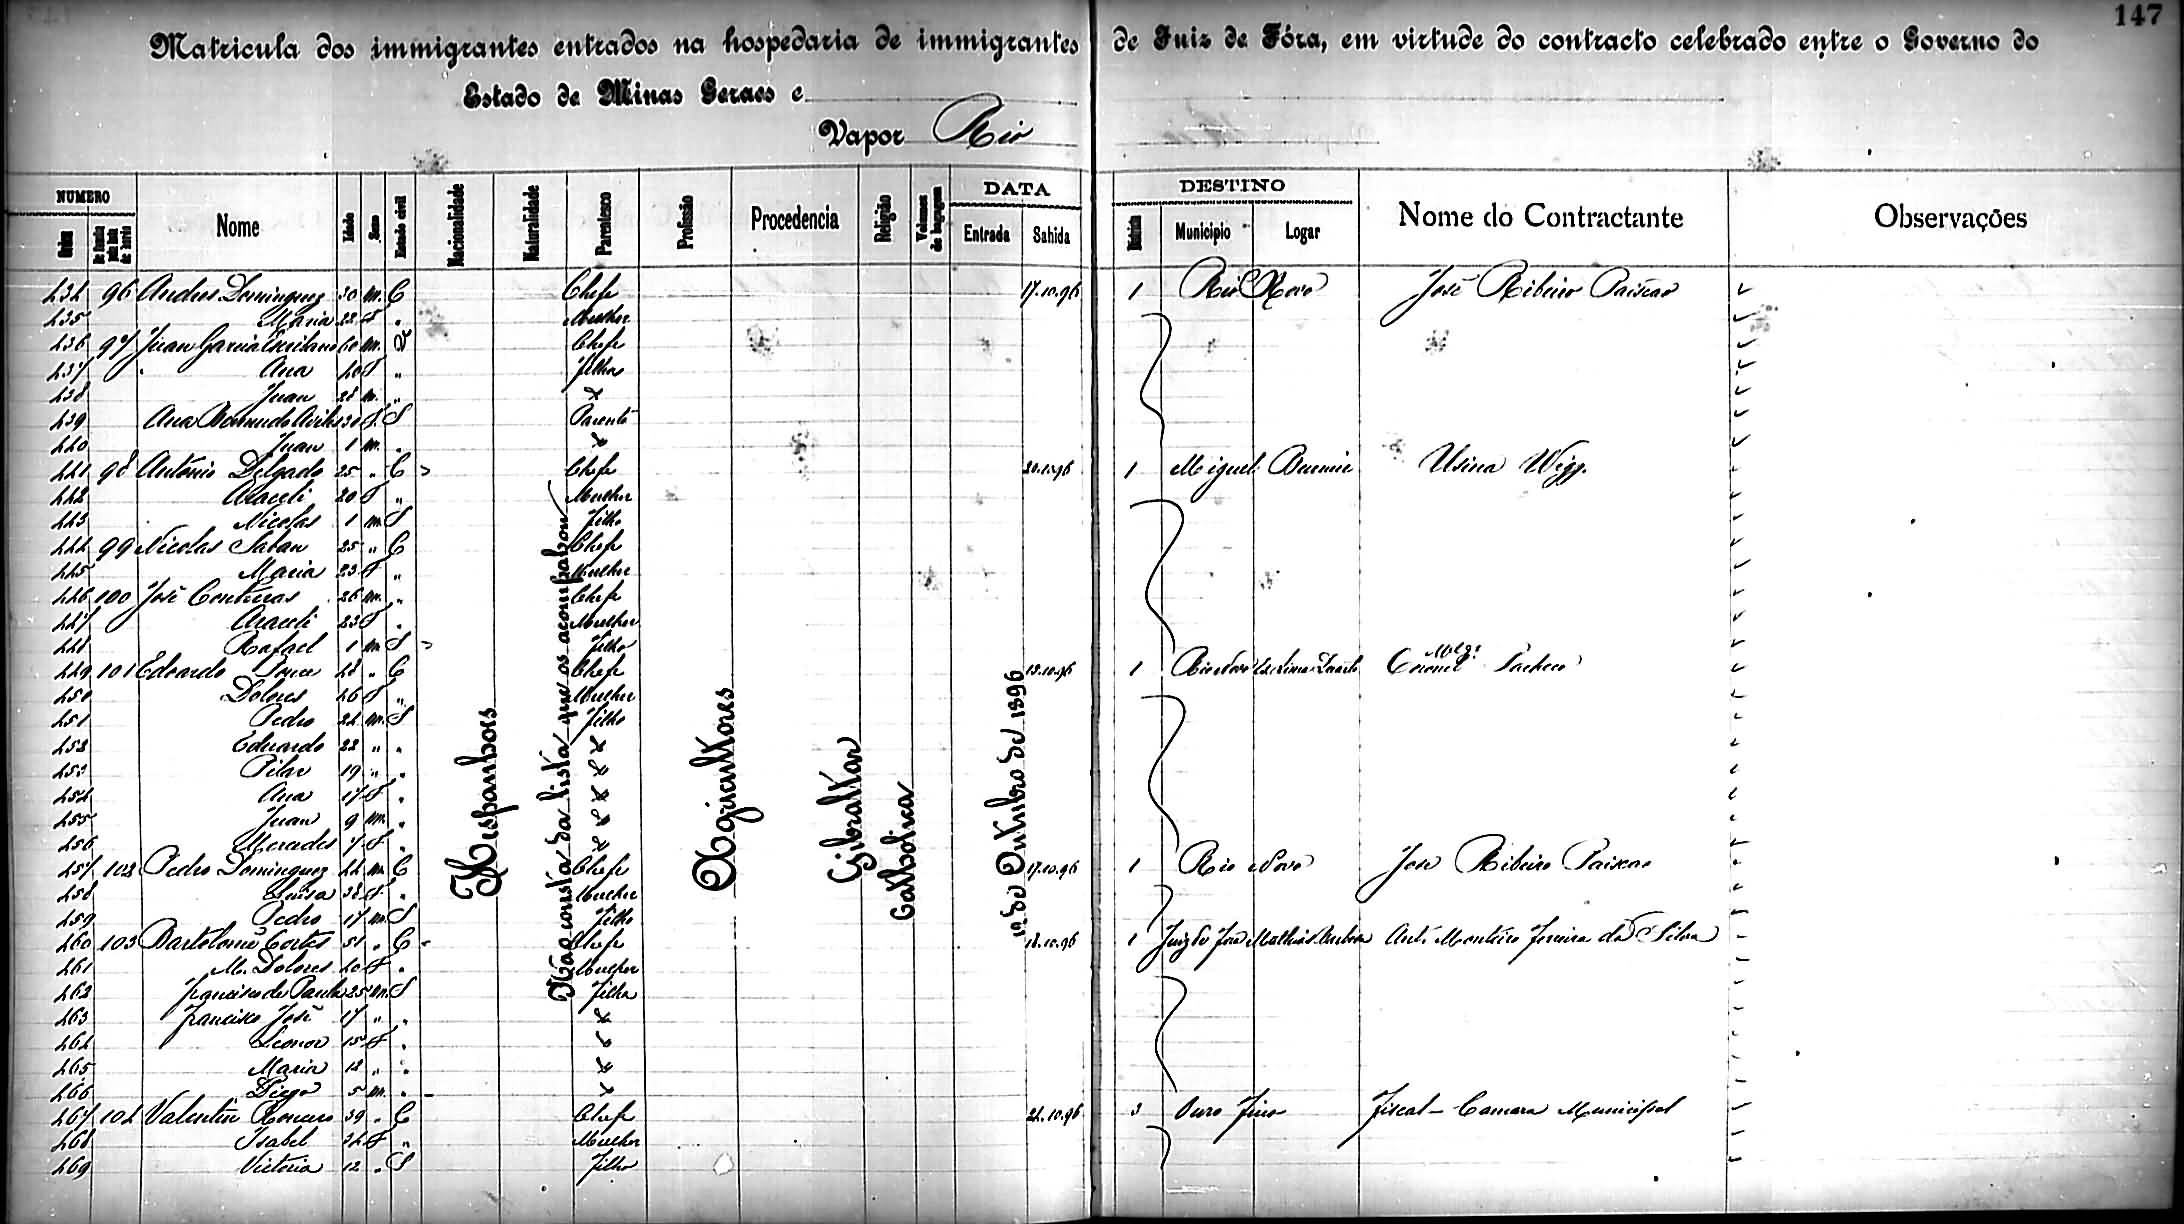 147
Matricula dos immigrantes entrados na hospedaria de immigrantes de Juiz de Fóra, em virtude do contracto celebrado entre o Governo do
Estado de Minas Geraes e
Vapor Rio
NUMERO Nome Idade Sexo Estado civil Nacionalidade Naturalidade Parentesco Profissão Procedencia Religião Volumes de bagagem DATA DESTINO Nome do Contractante Observações
Ordem Entrada Sahida Districto Municipio Logar
434 96 Andres Dominguez 30 m. C Chefe 17.10.96 1 Rio Novo José Ribeiro Paixão
435 Maria 22 F " Mulher
436 97 Juan Garcia 60 m. Chefe
437 Ana 40 F " Filha
438 Juan 28 m. " "
439 Ana S Parente
440 Juan 1 m. " "
441 98 Antonio Delgado 25 " C Chefe 20.10.96 1 Miguel Burnier Usina Wigg.
442 Araceli 20 F " Mulher
443 Nicolas 1 m S Filho
444 99 Nicolas 25 " C Chefe
445 Maria 23 F " Mulher
446 100 José Contreras 26 m. " Chefe
447 Araceli 23 F " Mulher
448 Rafael 1 m S Filho
449 101 Edoardo 48 " C Chefe 1 Rio Novo Coronel Pacheco
450 Dolores 46 F " Mulher
451 Pedro 24 m. S Filho
452 Eduardo 22 " " "
453 Pilar 19 " " "
454 Ana 17 F " "
455 Juan 9 m. " "
456 Mercedes 7 F " "
457 102 Pedro Dominguez 44 m C Chefe 17.10.96 1 Rio Novo José Ribeiro Paixão
458 Luisa 38 F " Mulher
459 Pedro 17 m. S Filho
460 103 Bartolomé Cortes 51 " C Chefe 18.10.96 1 Juiz de Fora Mathias Barbosa Ant. Monteiro Ferreira da Silva
461 M. Dolores 40 F " Mulher
462 Francisco de Paula 25 m. S Filho
463 Francisco José 17 " " "
464 Leonor 15 F " "
465 Maria 12 " " "
466 Diego 5 m. " "
467 104 Valentin Romero 39 " C Chefe 24.10.96 3 Ouro Fino Fiscal - Camara Municipal
468 Isabel 34 F " Mulher
469 Victoria 12 " S Filho
Hespanhoes
Não consta da lista que os acompanhou
Agricultores
Gibraltar
Catholica
de Outubro de 1896